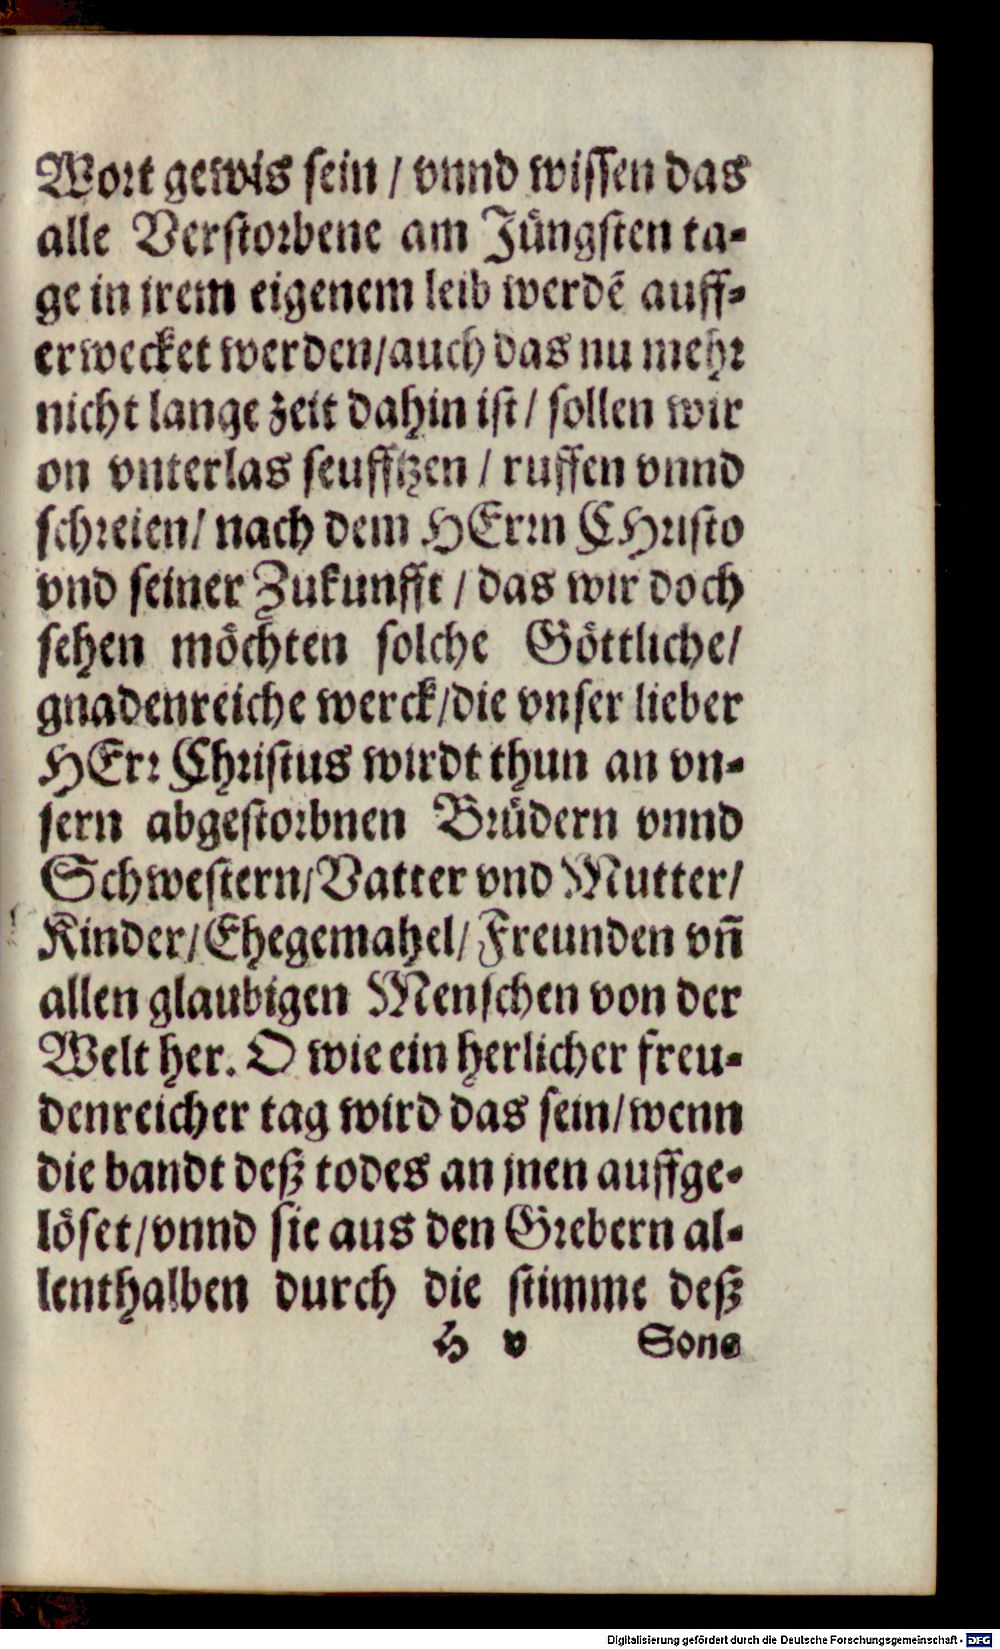 Wort gewis sein / vnnd wissen das
alle Verstorbene am Jüngsten ta-
ge in jrem eigenem leib werdẽ auff-
erwecket werden/auch das nu mehr
nicht lange zeit dahin ist / sollen wir
on vnterlas seufftzen / ruffen vnnd
schreien/ nach dem HErrn CHristo
vnd seiner Zukunfft / das wir doch
sehen möchten solche Göttliche/
gnadenreiche werck/die vnser lieber
HErr Christus wirdt thun an vn-
sern abgestorbnen Brüdern vnnd
Schwestern/Vatter vnd Mutter/
Kinder/Ehegemahel/ Freunden vñ
allen glaubigen Menschen von der
Welt her. O wie ein herlicher freu-
denreicher tag wird das sein/wenn
die bandt deß todes an jnen auffge-
löset/vnnd sie aus den Grebern al-
lenthalben durch die stimme deß
H v Sons
Digitalisierung gefördert durch die Deutsche Forschungsgemeinschaft - DFG